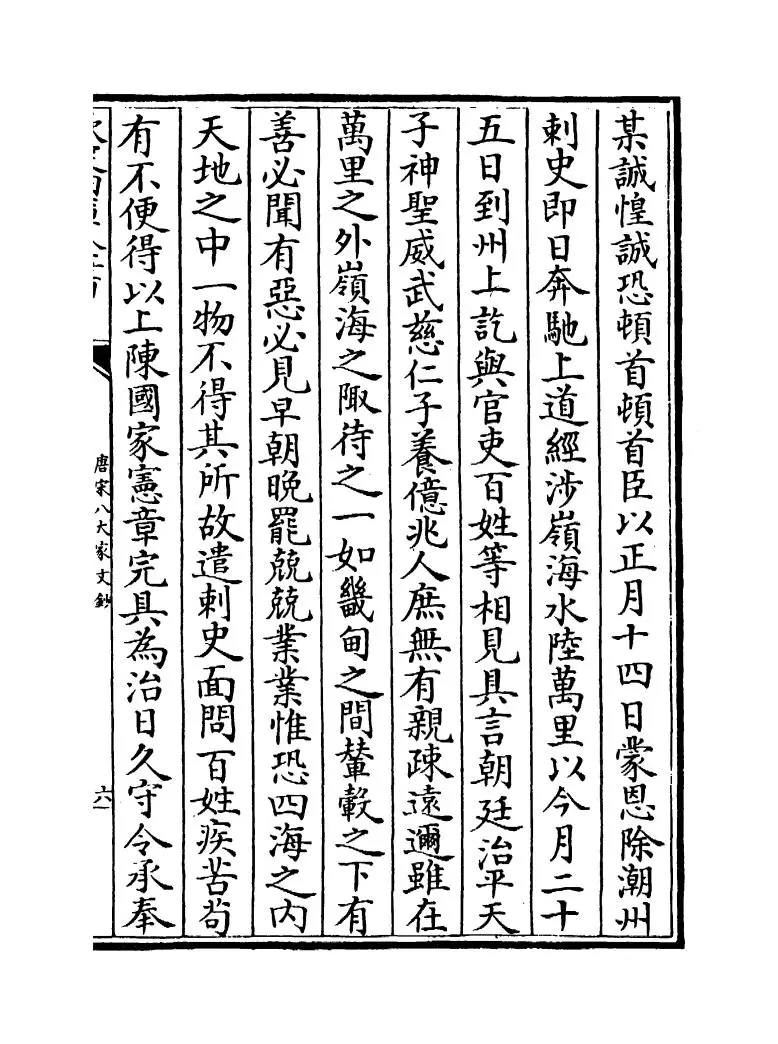 某誠惶誠恐頓首頓首臣以正月十四日蒙恩除潮州
刺史即日奔馳上道經涉嶺海水陸萬里以今月二十
五日到州上訖與官吏百姓等相見具言朝廷治平天
子神聖威武慈仁子養億兆人庶無有親疎遠邇雖在
萬里之外嶺海之陬待之一如畿甸之間輦轂之下有
善必聞有惡必見早朝晚罷兢兢業業惟恐四海之内
天地之中一物不得其所故遣刺史面問百姓疾苦苟
有不便得以上陳國家憲章完具為治日久守令承奉
唐宋八大家文鈔
六